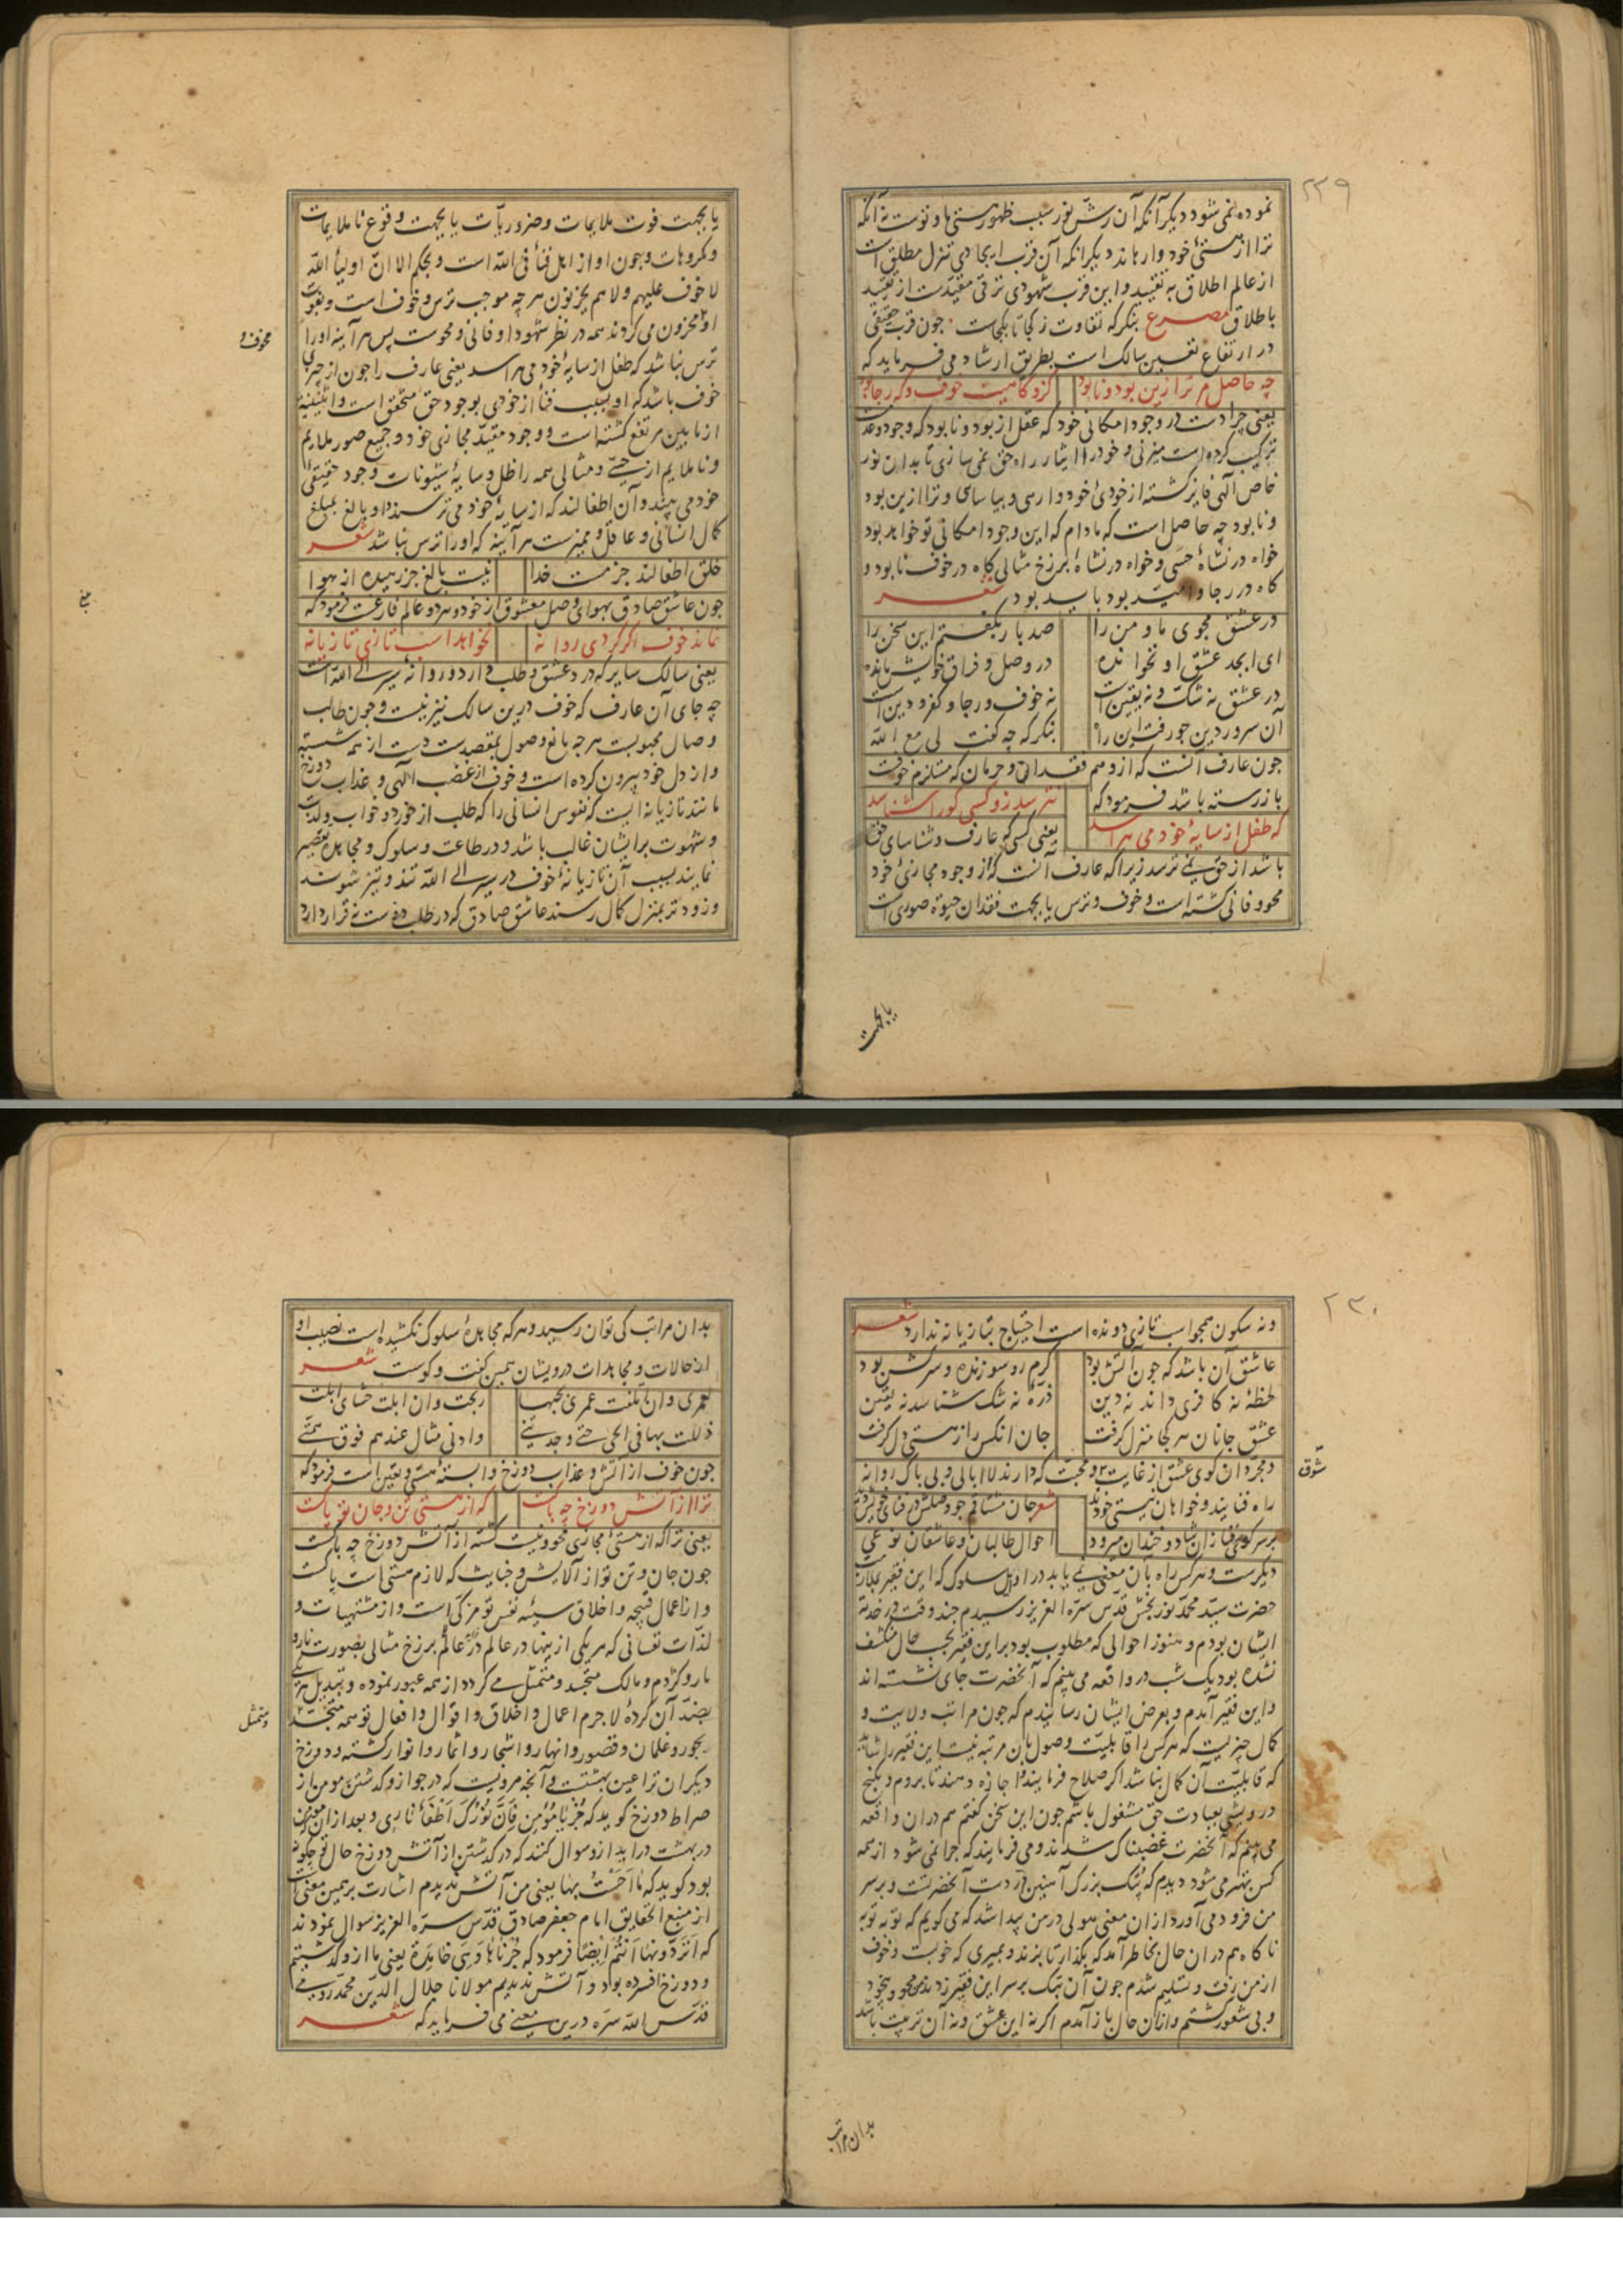 ۲۲۹
نموده نمی شود دیگر آنکه آن رش نور سبب ظهور هستی ما و توست نه آنکه
ترا از هستئ خود وارهاند دیگر انکه آن قرب ایجادی تنزل مطلق است
از عالم اطلاق به تقیید و این قرب شهودی ترقی مقیدست از تقیید
باطلاق مصرع بنگر که تفاوت ز کجا تا بکجاست چون قرب حقیقی
در ارتفاع تعین سالک است بطریق ارشاد می فرماید که
چه حاصل مر ترا زین بود و نابود کزو گاهیت خوف و گه رجا بود
یعنی چرا دست در وجود امکانی خود که عقل از بود و نابود که وجود و عدمست
ترکیب کرده است میزنی و خود را ایثار راه حق نمی سازی تا بدان نور
خاص الهی فایز گشته از خودئ خود وارسی و بیاسای و ترا ازین بود
و نابود چه حاصل است که مادام که این وجود امکانی تو خواهد بود
خواه در نشاهٔ حسی و خواه در نشاهٔ برزخ مثالی گاه در خوف نابود و
گاه در رجا و امید بود باید بود شعر
در عشق مجوی ما و من را صد بار بگفتم این سخن را
ای ابجد عشق او نخوانده در وصل و فراق خویش مانده
در عشق نه شک و نه یقین است نه خوف و رجا و کفر و دین است
آن سرور دین چو رفت این راه بنگر که چه گفت لی مع الله
چون عارف آنست که از وهم فقدان و حرمان که مستلزم خوفست
باز رسته باشد فرمود که نترسد زو کسی کو را شناسد
که طفل از سایهٔ خود می هراسد یعنی کسی که عارف و شناسای حق
باشد از حق نمی ترسد زیرا که عارف آنست که از وجود مجازئ خود
محو و فانی گشته است و خوف و ترس یا بجهت فقدان حیوة صوری است
یا بجهت
یا بجهت فوت ملایمات و ضروریات یا بجهت وقوع ناملایمات
و مکروهات و چون او از اهل فنأ فی الله است و بحکم الا ان اولیأ الله
لا خوف علیهم و لا هم یحزنون هر چه موجب ترس و خوف است و بفوت
او محزون می گردند همه در نظر شهود او فانی و محوست پس هر آینه او را
مخوف و
ترس نباشد که طفل از سایهٔ خود می هراسد یعنی عارف را چون از چیزی
خوف باشد که او بسبب فنأ از خودی بوجود حق متحقق است و اثنینیة
از مابین مرتفع گشته است و وجود مقید مجازی خود و جمیع صور ملایم
و ناملایم از حسی و مثالی همه را ظل و سایهٔ شیونات وجود حقیقئ
خود می بیند و آن اطفالند که از سایهٔ خود می ترسند و او بالغ بمبلغ
کمال انسانی و عاقل و ممیزست هر آینه که او را ترس نباشد شعر
خلق اطفالند جز مست خدا نیست بالغ جز رهیده از هوا
چون عاشق صادق بهوای وصل معشوق از خود و هر دو عالم فارغست فرمود که
نماند خوف اگر گردی روانه نخواهد اسب تازی تازیانه
یعنی سالک سایر که درد عشق و طلب دارد و روانهٔ سیر الی الله است
چه جای آن عارف که خوف درین سالک نیز نیست و چون طالب
وصال محبوبست هر چه مانع وصول بمقصدست دست از همه شسته
و از دل خود بیرون کرده است و خوف از غضب الهی و عذاب دوزخ
مانند تازیانه ایست که نفوس انسانی را که طلب از خورد و خواب و لذت
و شهوت بر ایشان غالب باشد و در طاعت و سلوک و مجاهده تقصیر
نمایند بسبب آن تازیانهٔ خوف در سیر الی الله تند و تیز شوند
و زودتر بمنزل کمال رسند عاشق صادق که در طلب دوست نه قرار دارد
۲۳۰
و نه سکون همچو اسب تازی دونده است احتیاج بتازیانه ندارد شعر
عاشق آن باشد که چون آتش بود گرم رو سوزنده و سرکش بود
لحظهٔ نه کافری داند نه دین ذرهٔ نه شک شناسد نه یقین
عشق جانان هر کجا منزل گرفت جان انکس را ز هستی دل گرفت
و مجردان کوی عشق از غایت و محبت که دارند لاابالی و بی باک روانهٔ
شوق
راه فنایند و خواهان نیستی خودند شعر جان مشتاقم چو وصلش در فنای خویش دید
بر سر کوی فنا زان شاد و خندان میرود احوال طالبان و عاشقان نوعی
دیگرست و هر کس راه بآن معنی نمی یابد در اوایل سلوک که این فقیر بملازمت
حضرت سید محمد نوربخش قدس سره العزیز رسیدم چند وقت در خدمت
ایشان بودم و هنوز احوالی که مطلوب بود بر این فقیر بحسب حال منکشف
نشده بود یک شب در واقعه می بینم که آنحضرت جای نشسته اند
و این فقیر آمدم و بعرض ایشان رسانیدم که چون مراتب ولایت و
کمال چیزیست که هر کس را قابلیت وصول بآن مرتبه نیست این فقیر را شاید
که قابلیت آن کمال نباشد اگر صلاح فرمایند و اجازه دهند تا بروم و بکنج
درویشی بعبادت حق مشغول باشم چون این سخن گفتم هم در ان واقعه
می بینم که آنحضرت غضبناک شدند و می فرمایند که چرا نمی شود از همه
کس بهتر می شود دیدم که پتک بزرگ آهنین در دست آنحضرتست و بر سر
من فرود می آورد از ان معنی هولی در من پیدا شد که می گویم که توبه توبه
ناگاه هم در ان حال بخاطر آمد که بگذار تا بزند و بمیری که خوبست و خوف
از من رفت و تسلیم شدم چون آن پتک بر سر این فقیر زدند محو و بیخود
و بی شعور گشتم و از ان حال باز آمدم اگر نه این عشق و نه آن تربیت باشد
بدان مراتب
بدان مراتب کی توان رسید و هر که مجاهدهٔ سلوک نکشیده است نصیب او
از حالات و مجاهدات درویشان همین گفت و گوست شعر
لعمری وان اتلفت عمری بحبها ربحت وان ابلت حشای ابلت
ذللت بها فی الحی حتی وجدتنی وادنی منال عندهم فوق همتی
چون خوف از آتش و عذاب دوزخ وابستهٔ هستی و تعین است فرمود که
ترا از آتش دوزخ چه باکست که از هستی تن و جان تو پاکست
یعنی ترا که از هستئ مجازی محو و نیست گشتهٔ از آتش دوزخ چه باکست
چون جان و تن تو از آلایش و خباثت که لازم هستی است پاکست
و از اعمال قبیحه و اخلاق سیئه نفس تو مزکی است و از مشتهیات و
لذات نفسانی که هر یکی از ینها در عالم برزخ مثالی بصورت نار و
مار و کژدم و مالک متجسد و متمثل می گردد از همه عبور نموده و تبدیل هر یکی
بضد آن کردهٔ لاجرم اعمال و اخلاق و اقوال و افعال تو همه متجسد
و متمثل
بحور و غلمان و قصور و انهار و اشجار و اثمار و انوار گشته و دوزخ
دیگران ترا عین بهشتست و آنچه مرویست که در جواز و گذشتن مومن از
صراط دوزخ گوید که جُز یا مؤمن فان نورک اطفأ ناری و بعد از ان مومن
در بهشت درآید ازو سوال کنند که در گذشتن از آتش دوزخ حال تو چگونه
بود گوید که ما احست بها یعنی من آتش ندیدم اشارت برین معنی است
از منبع الحقایق امام جعفر صادق قدس سره العزیز سوال نمودند
که اتردونها انتم ایضا فرمود که جزناها و هی خامدة یعنی ما ازو گذشتیم
و دوزخ افسرده بود و آتش ندیدیم مولانا جلال الدین محمد رومی
قدس الله سره درین معنی می فرماید که شعر